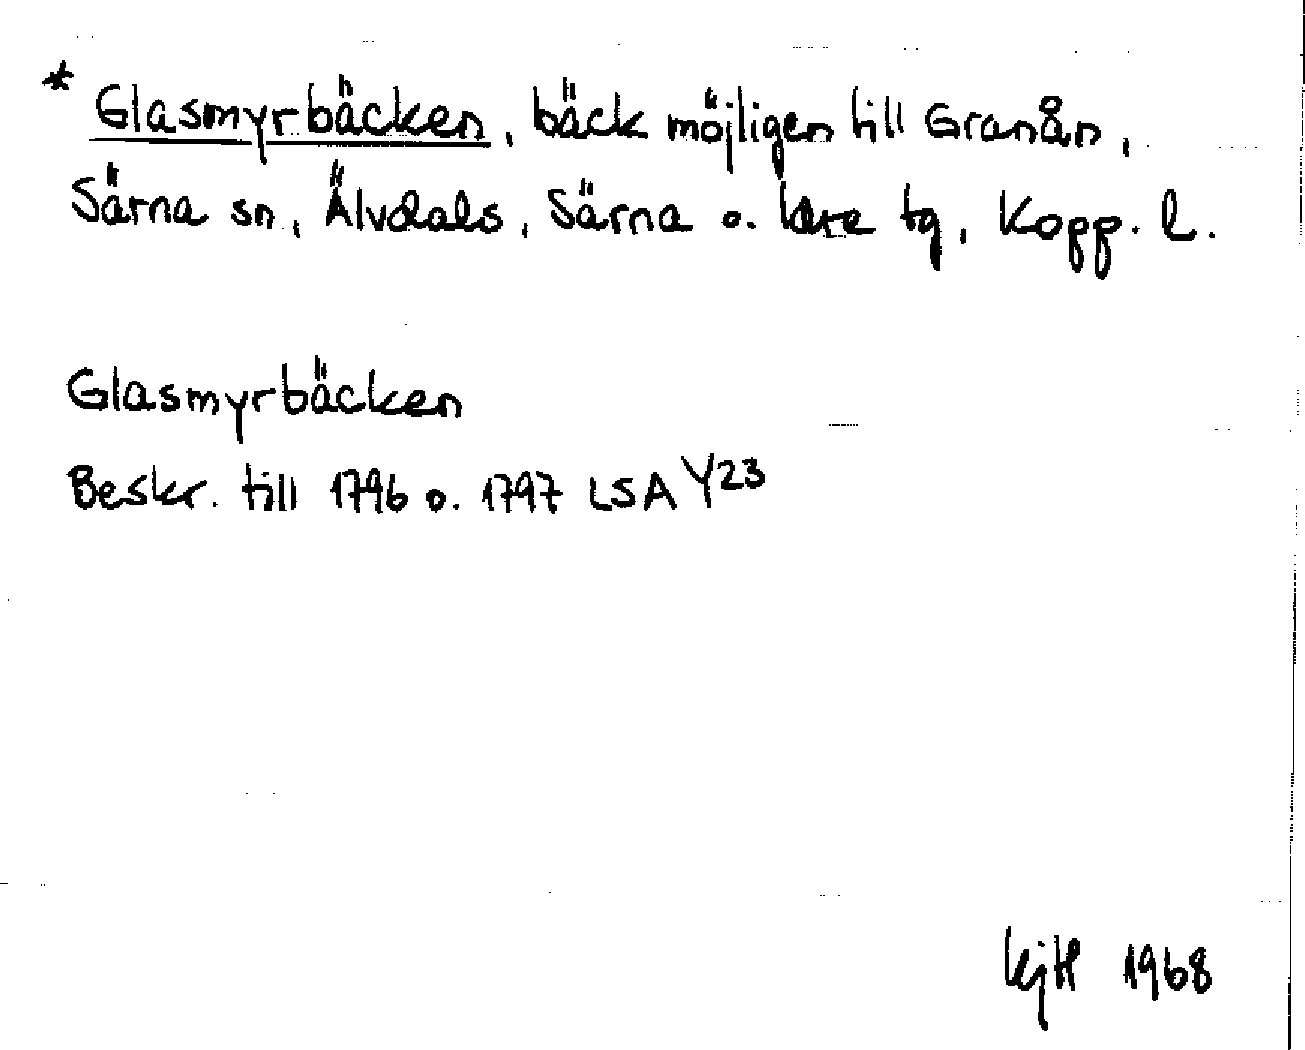 * Glasmyrbäcken, bäck möjligen till Granån,
Särna sn, Älvdals, Särna o. Idre tg, Kopp. l.
Glasmyrbäcken
Beskr. till 1796 o. 1797 LSA Y23
KjH 1968